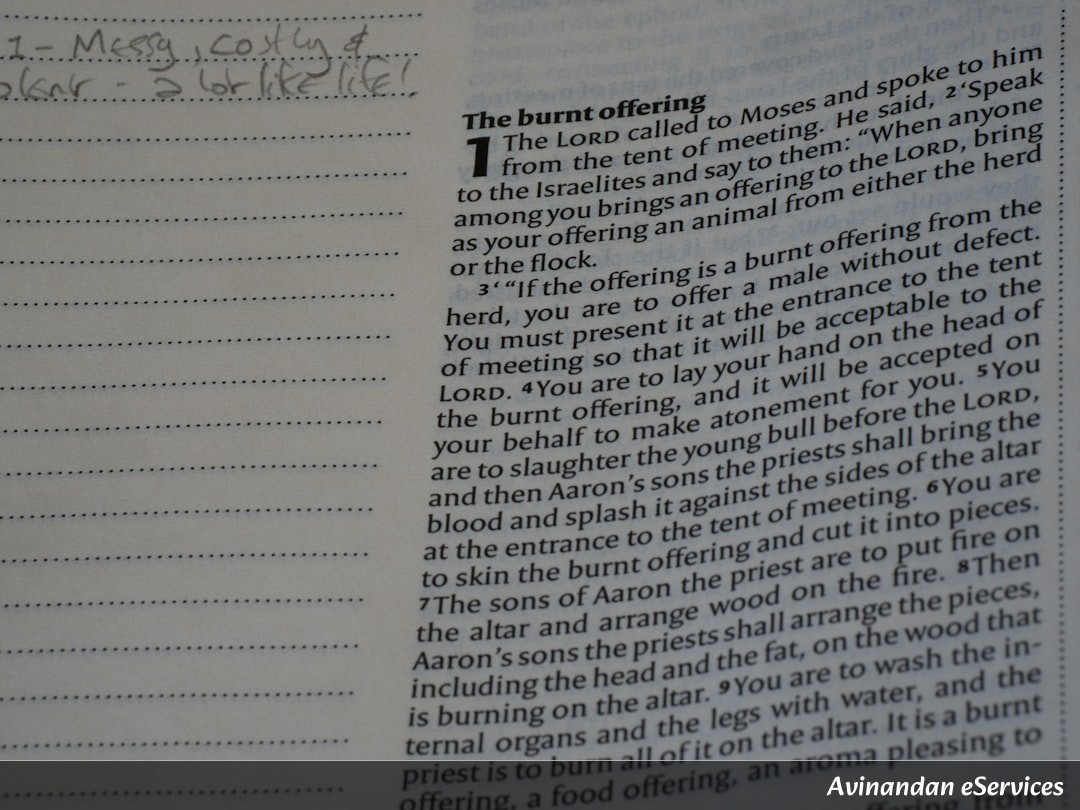 1 - Messy, costly &
- a lot like life!
The burnt offering
1 The LORD called to Moses and spoke to him
from the tent of meeting. He said, 2‘Speak
to the Israelites and say to them: “When anyone
among you brings an offering to the LORD, bring
as your offering an animal from either the herd
or the flock.
3‘“If the offering is a burnt offering from the
herd, you are to offer a male without defect.
You must present it at the entrance to the tent
of meeting so that it will be acceptable to the
LORD. 4You are to lay your hand on the head of
the burnt offering, and it will be accepted on
your behalf to make atonement for you. 5You
are to slaughter the young bull before the LORD,
and then Aaron’s sons the priests shall bring the
blood and splash it against the sides of the altar
at the entrance to the tent of meeting. 6You are
to skin the burnt offering and cut it into pieces.
7The sons of Aaron the priest are to put fire on
the altar and arrange wood on the fire. 8Then
Aaron’s sons the priests shall arrange the pieces,
including the head and the fat, on the wood that
is burning on the altar. 9You are to wash the in-
ternal organs and the legs with water, and the
priest is to burn all of it on the altar. It is a burnt
offering, a food offering, an aroma pleasing to
Avinandan eServices